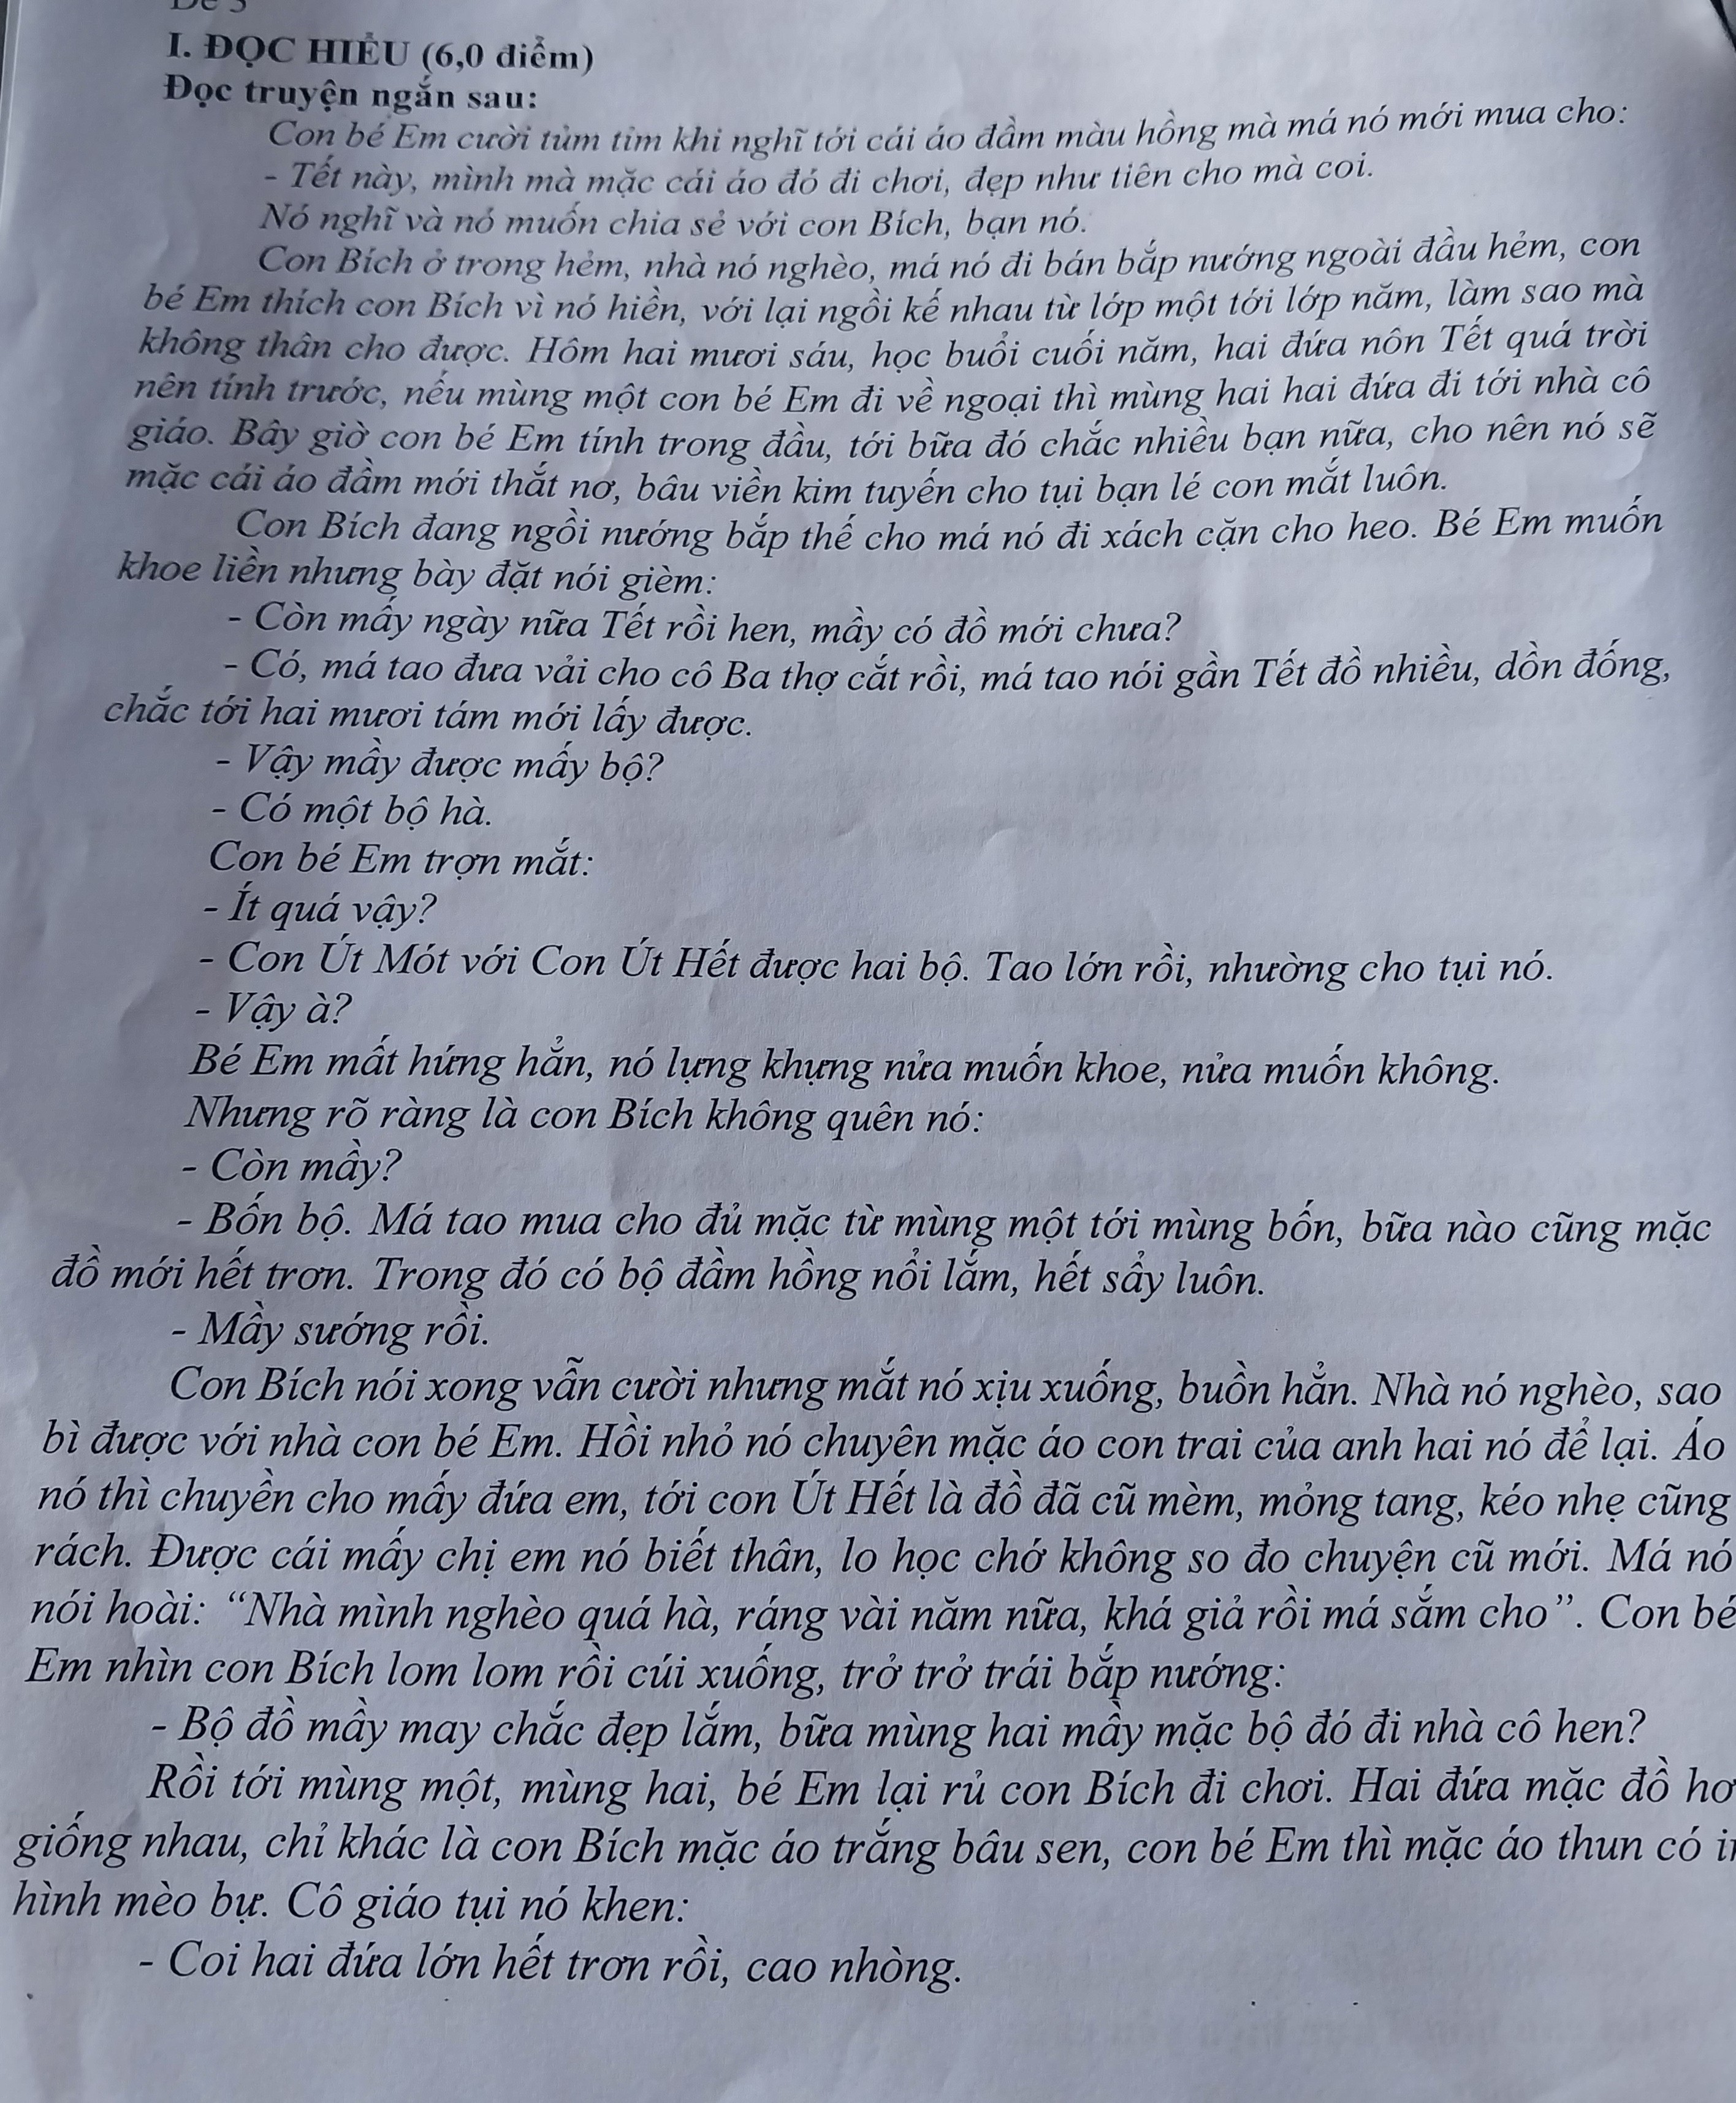 I. ĐỌC HIỂU (6,0 điểm)
Đọc truyện ngắn sau:
Con bé Em cười tủm tỉm khi nghĩ tới cái áo đầm màu hồng mà má nó mới mua cho:
- Tết này, mình mà mặc cái áo đó đi chơi, đẹp như tiên cho mà coi.
Nó nghĩ và nó muốn chia sẻ với con Bích, bạn nó.
Con Bích ở trong hẻm, nhà nó nghèo, má nó đi bán bắp nướng ngoài đầu hẻm, con
bé Em thích con Bích vì nó hiền, với lại ngồi kế nhau từ lớp một tới lớp năm, làm sao mà
không thân cho được. Hôm hai mươi sáu, học buổi cuối năm, hai đứa nôn Tết quá trời
nên tính trước, nếu mùng một con bé Em đi về ngoại thì mùng hai hai đứa đi tới nhà cô
giáo. Bây giờ con bé Em tính trong đầu, tới bữa đó chắc nhiều bạn nữa, cho nên nó sẽ
mặc cái áo đầm mới thắt nơ, bâu viền kim tuyến cho tụi bạn lé con mắt luôn.
Con Bích đang ngồi nướng bắp thế cho má nó đi xách cặn cho heo. Bé Em muốn
khoe liền nhưng bày đặt nói gièm:
- Còn mấy ngày nữa Tết rồi hen, mầy có đồ mới chưa?
- Có, má tao đưa vải cho cô Ba thợ cắt rồi, má tao nói gần Tết đồ nhiều, dồn đống,
chắc tới hai mươi tám mới lấy được.
- Vậy mầy được mấy bộ?
- Có một bộ hà.
Con bé Em trợn mắt:
- Ít quá vậy?
- Con Út Mót với Con Út Hết được hai bộ. Tao lớn rồi, nhường cho tụi nó.
- Vậy à?
Bé Em mất hứng hẳn, nó lựng khựng nửa muốn khoe, nửa muốn không.
Nhưng rõ ràng là con Bích không quên nó:
- Còn mầy?
- Bốn bộ. Má tao mua cho đủ mặc từ mùng một tới mùng bốn, bữa nào cũng mặc
đồ mới hết trơn. Trong đó có bộ đầm hồng nổi lắm, hết sẩy luôn.
- Mầy sướng rồi.
Con Bích nói xong vẫn cười nhưng mắt nó xịu xuống, buồn hẳn. Nhà nó nghèo, sao
bì được với nhà con bé Em. Hồi nhỏ nó chuyên mặc áo con trai của anh hai nó để lại. Áo
nó thì chuyền cho mấy đứa em, tới con Út Hết là đồ đã cũ mèm, mỏng tang, kéo nhẹ cũng
rách. Được cái mấy chị em nó biết thân, lo học chớ không so đo chuyện cũ mới. Má nó
nói hoài: “Nhà mình nghèo quá hà, ráng vài năm nữa, khá giả rồi má sắm cho”. Con bé
Em nhìn con Bích lom lom rồi cúi xuống, trở trở trái bắp nướng:
- Bộ đồ mầy may chắc đẹp lắm, bữa mùng hai mầy mặc bộ đó đi nhà cô hen?
Rồi tới mùng một, mùng hai, bé Em lại rủ con Bích đi chơi. Hai đứa mặc đồ hơ
giống nhau, chỉ khác là con Bích mặc áo trắng bâu sen, con bé Em thì mặc áo thun có
hình mèo bự. Cô giáo tụi nó khen:
- Coi hai đứa lớn hết trơn rồi, cao nhòng.